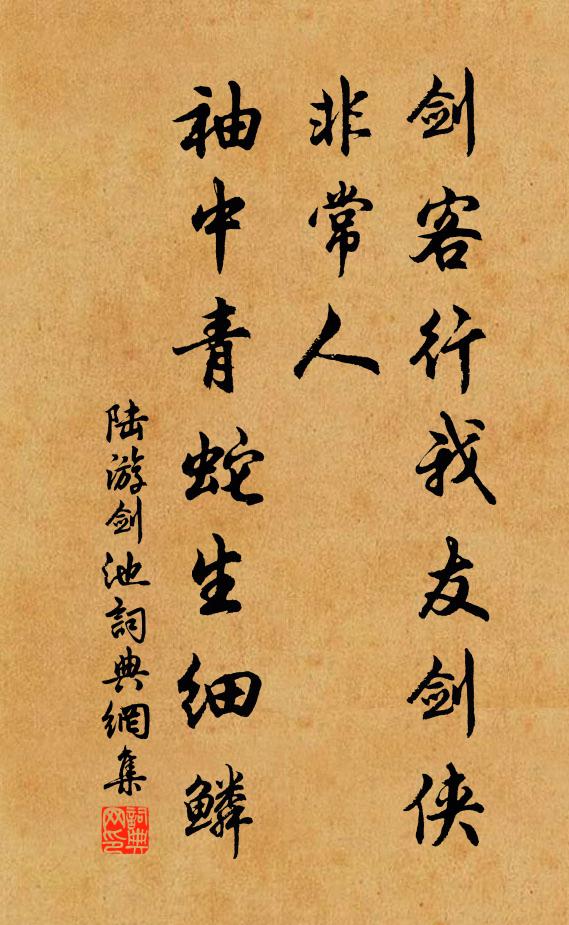 剑客行我友剑侠
非常人
袖中青蛇生细鳞
陆游剑池詞典網集
詞典网印